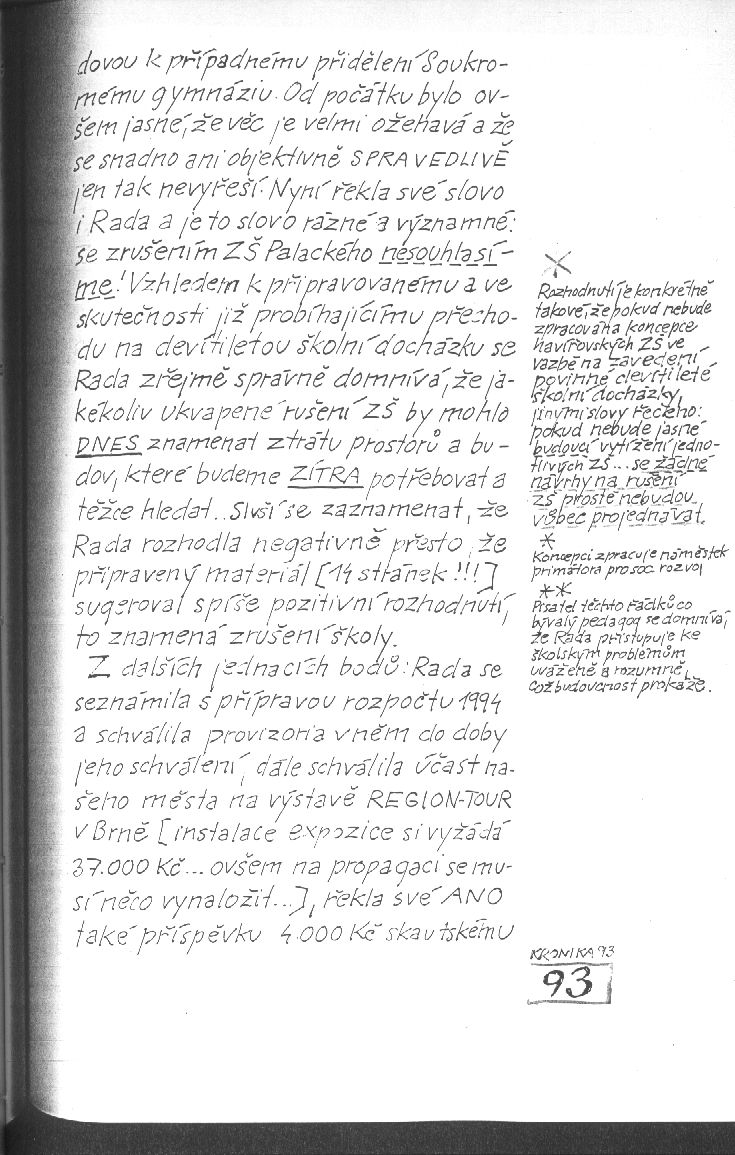 dovou k případnému přidělení Soukro-
mému gymnáziu. Od počátku bylo ov-
šem jasné, že věc je velmi ožehavá a že
se snadno ani objektivně SPRAVEDLIVĚ
jen tak nevyřeší. Nyní řekla své slovo
i Rada a je to slovo rázné a významné:
se zrušením ZŠ Palackého nesouhlasí-
me! Vzhledem k připravovanému a ve
skutečnosti již probíhajícímu přecho-
du na devítiletou školní docházku se
Rada zřejmě správně domnívá, že ja-
kékoliv ukvapené rušení ZŠ by mohlo
DNES znamenat ztrátu prostorů a bu-
dov, které budeme ZÍTRA potřebovat a
těžce hledat... Sluší se zaznamenat, že
Rada rozhodla negativně přesto, že
připravený materiál [14 stránek !!!]
sugeroval spíše pozitivní rozhodnutí,
to znamená zrušení školy.
Z dalších jednacích bodů: Rada se
seznámila s přípravou rozpočtu 1994
a schválila provizoria v něm do doby
jeho schválení, dále schválila účast na-
šeho města na výstavě REGION-TOUR
v Brně [instalace expozice si vyžádá
37.000 Kč... ovšem na propagaci se mu-
sí něco vynaložit...], řekla své ANO
také příspěvku 4.000 Kč skautskému
Rozhodnutí je konkrétně
takové, že pokud nebude
zpracována koncepce
havířovských ZŠ ve
vazbě na zavedení
povinné devítileté
školní docházky,
jinými slovy řečeno:
pokud nebude jasné
budoucí vytížení jedno-
tlivých ZŠ... se žádné
návrhy na rušení
ZŠ prostě nebudou
vůbec projednávat.
*
Koncepci zpracuje náměstek
primátora pro soc. rozvoj
**
Pisatel těchto řádků co
bývalý pedagog se domnívá,
že Rada přistupuje ke
školským problémům
uváženě a rozumně,
což budoucnost prokáže.
KRONIKA 93
93